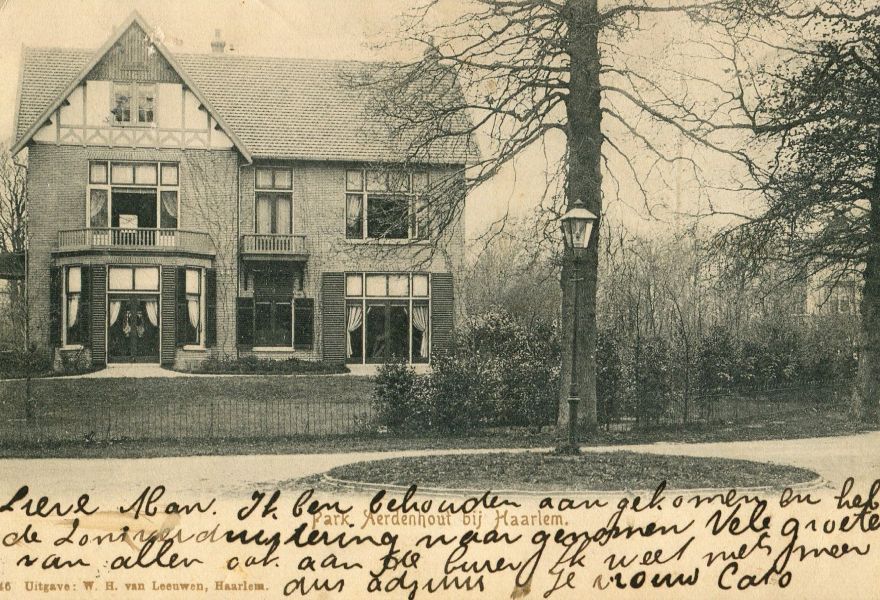 Lieve Man. Ik ben behouden aan gekomen en heb
Park Aerdenhout bij Haarlem.
de Zonsverduistering waar genomen Vele groete
van allen ook aan de buren Ik weet niets meer
46 Uitgave: W. H. van Leeuwen, Haarlem.
dus adjuus Je vrouw Cato